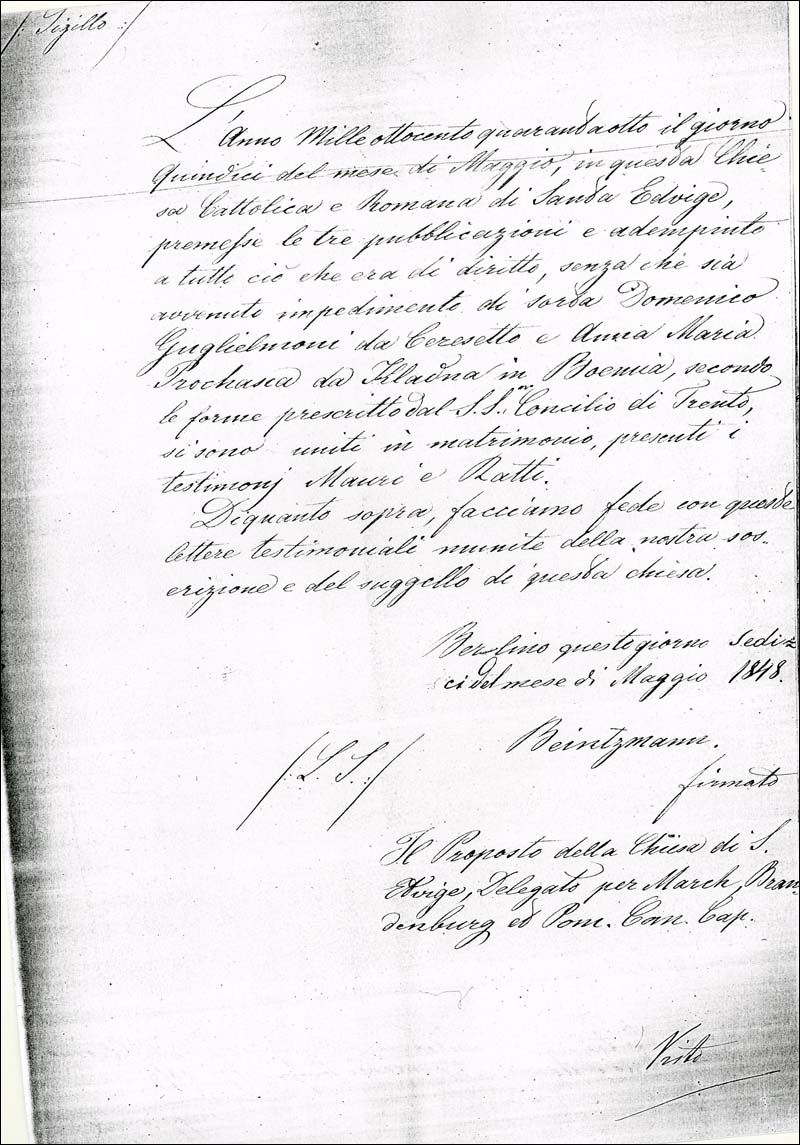 /: Sigillo :/
L'Anno Mille ottocento quarantaotto il giorno
Quindici del mese di Maggio, in questa Chie-
sa Cattolica e Romana di Santa Edvige,
premesse le tre pubblicazioni e adempiuto
a tutto ciò che era di diritto, senza che sia
avvenuto impedimento di sorta Domenico
Guglielmoni da Ceresetto e Anna Maria
Prochasca da Kladna in Boemia, secondo
le forme prescritto dal S.S. Concilio di Trento,
si sono uniti in matrimonio, presenti i
testimonj Mauri e Ratti.
Di quanto sopra, facciamo fede con queste
lettere testimoniali munite della nostra sos-
crizione e del suggello di questa chiesa.
Berlino questo giorno sedi-
ci del mese di Maggio 1848.
Beintzmann.
/: L. S. :/
firmato
Il Proposto della Chiesa di S.
Edvige, Delegato per March, Bran-
denburg ed Pom. Can. Cap.
Visto